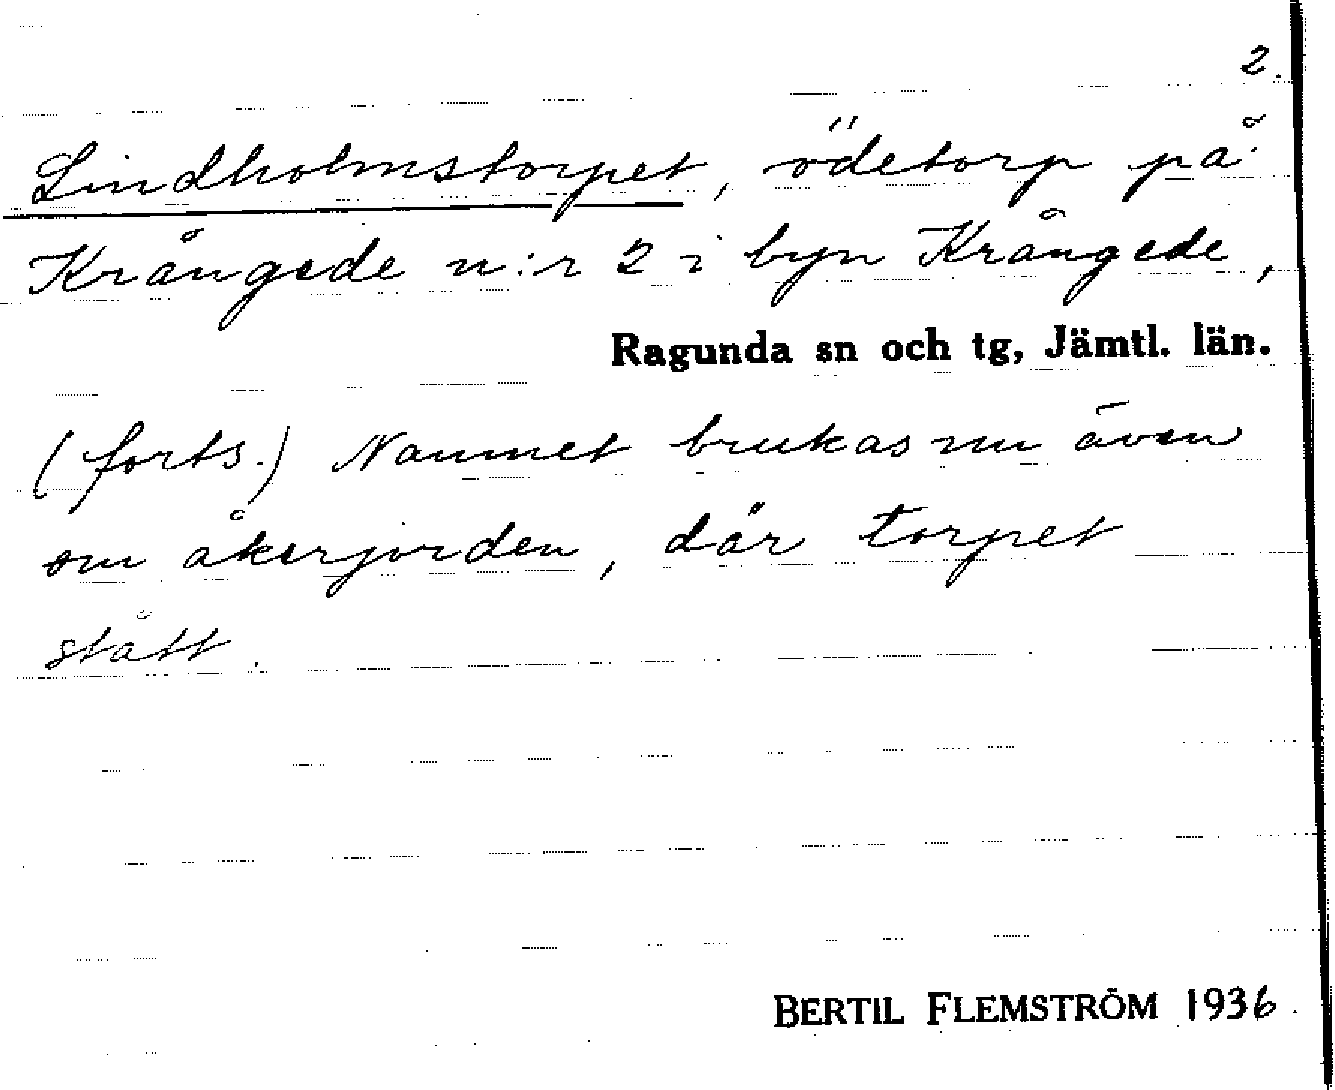 2.
Lindholmstorpet, ödetorp på
Krångede n:r 2 i byn Krångede,
Ragunda sn och tg, Jämtl. län.
(forts.) Namnet brukas nu även
om åkerjorden, där torpet
stått.
BERTIL FLEMSTRÖM 1936.